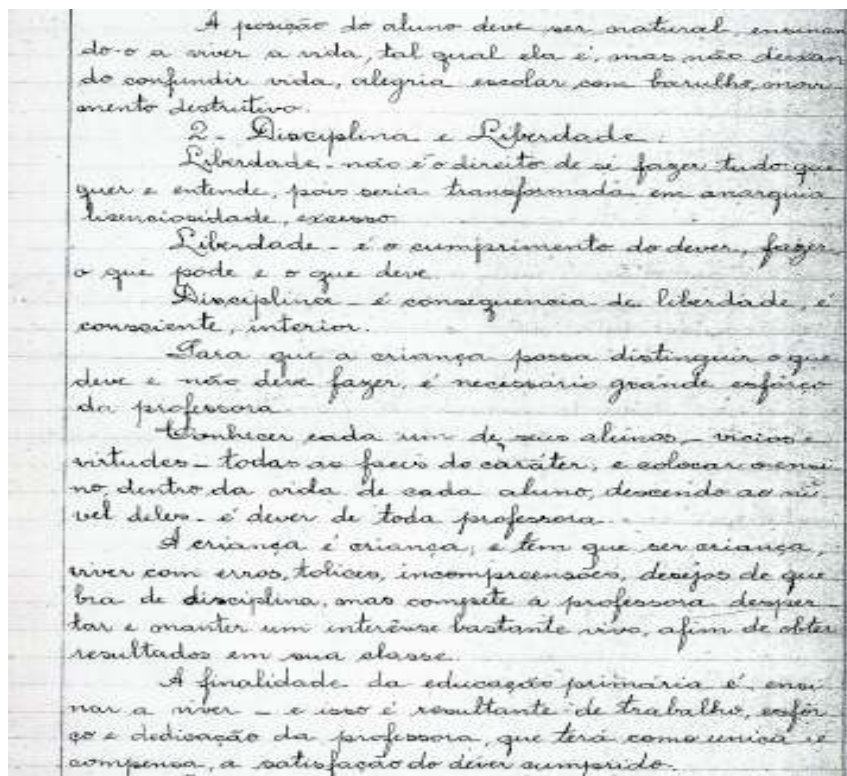 A posição do aluno deve ser natural, ensinan
do-o a viver a vida, tal qual ela é, mas não deixan
do confundir vida, alegria escolar, com barulho, movi
mento destrutivo.
2 - Disciplina e Liberdade.
Liberdade - não é o direito de se fazer tudo que
quer e entende, pois seria transformada em anarquia
lisenciosidade, excesso
Liberdade - é o cumprimento do dever, fazer
o que pode e o que deve.
Disciplina - é consequencia de liberdade, é
consciente, interior.
Para que a criança possa distinguir o que
deve e não deve fazer, é necessário grande esfôrço
da professora.
Conhecer cada um de seus alunos, - vicios e
virtudes - todas as faces do caráter, e colocar o ensi
no, dentro da vida de cada aluno, descendo ao ní
vel deles - é dever de toda professora.
A criança é criança, e tem que ser criança,
viver com erros, tolices, incompreensões, desejos de que
bra de disciplina, mas compete à professora desper
tar e manter um interêsse bastante vivo, afim de obter
resultados em sua classe.
A finalidade da educação primária é ensi
nar a viver - e isso é resultante de trabalho, esfôr
ço e dedicação da professora, que terá como unica re
compensa, a satisfação do dever cumprido.